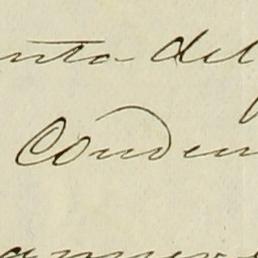 nta del
Conden